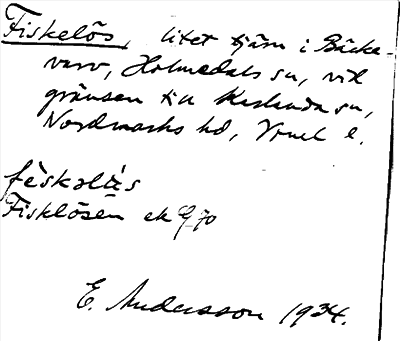 Fiskelös, litet tjärn i Bäcke-
varv, Holmedals sn, vid
gränsen till Karlanda sn,
Nordmarks hd, Vrml l.
fèskəlǜs
Fisklösen ek G 70
E. Andersson 1934.